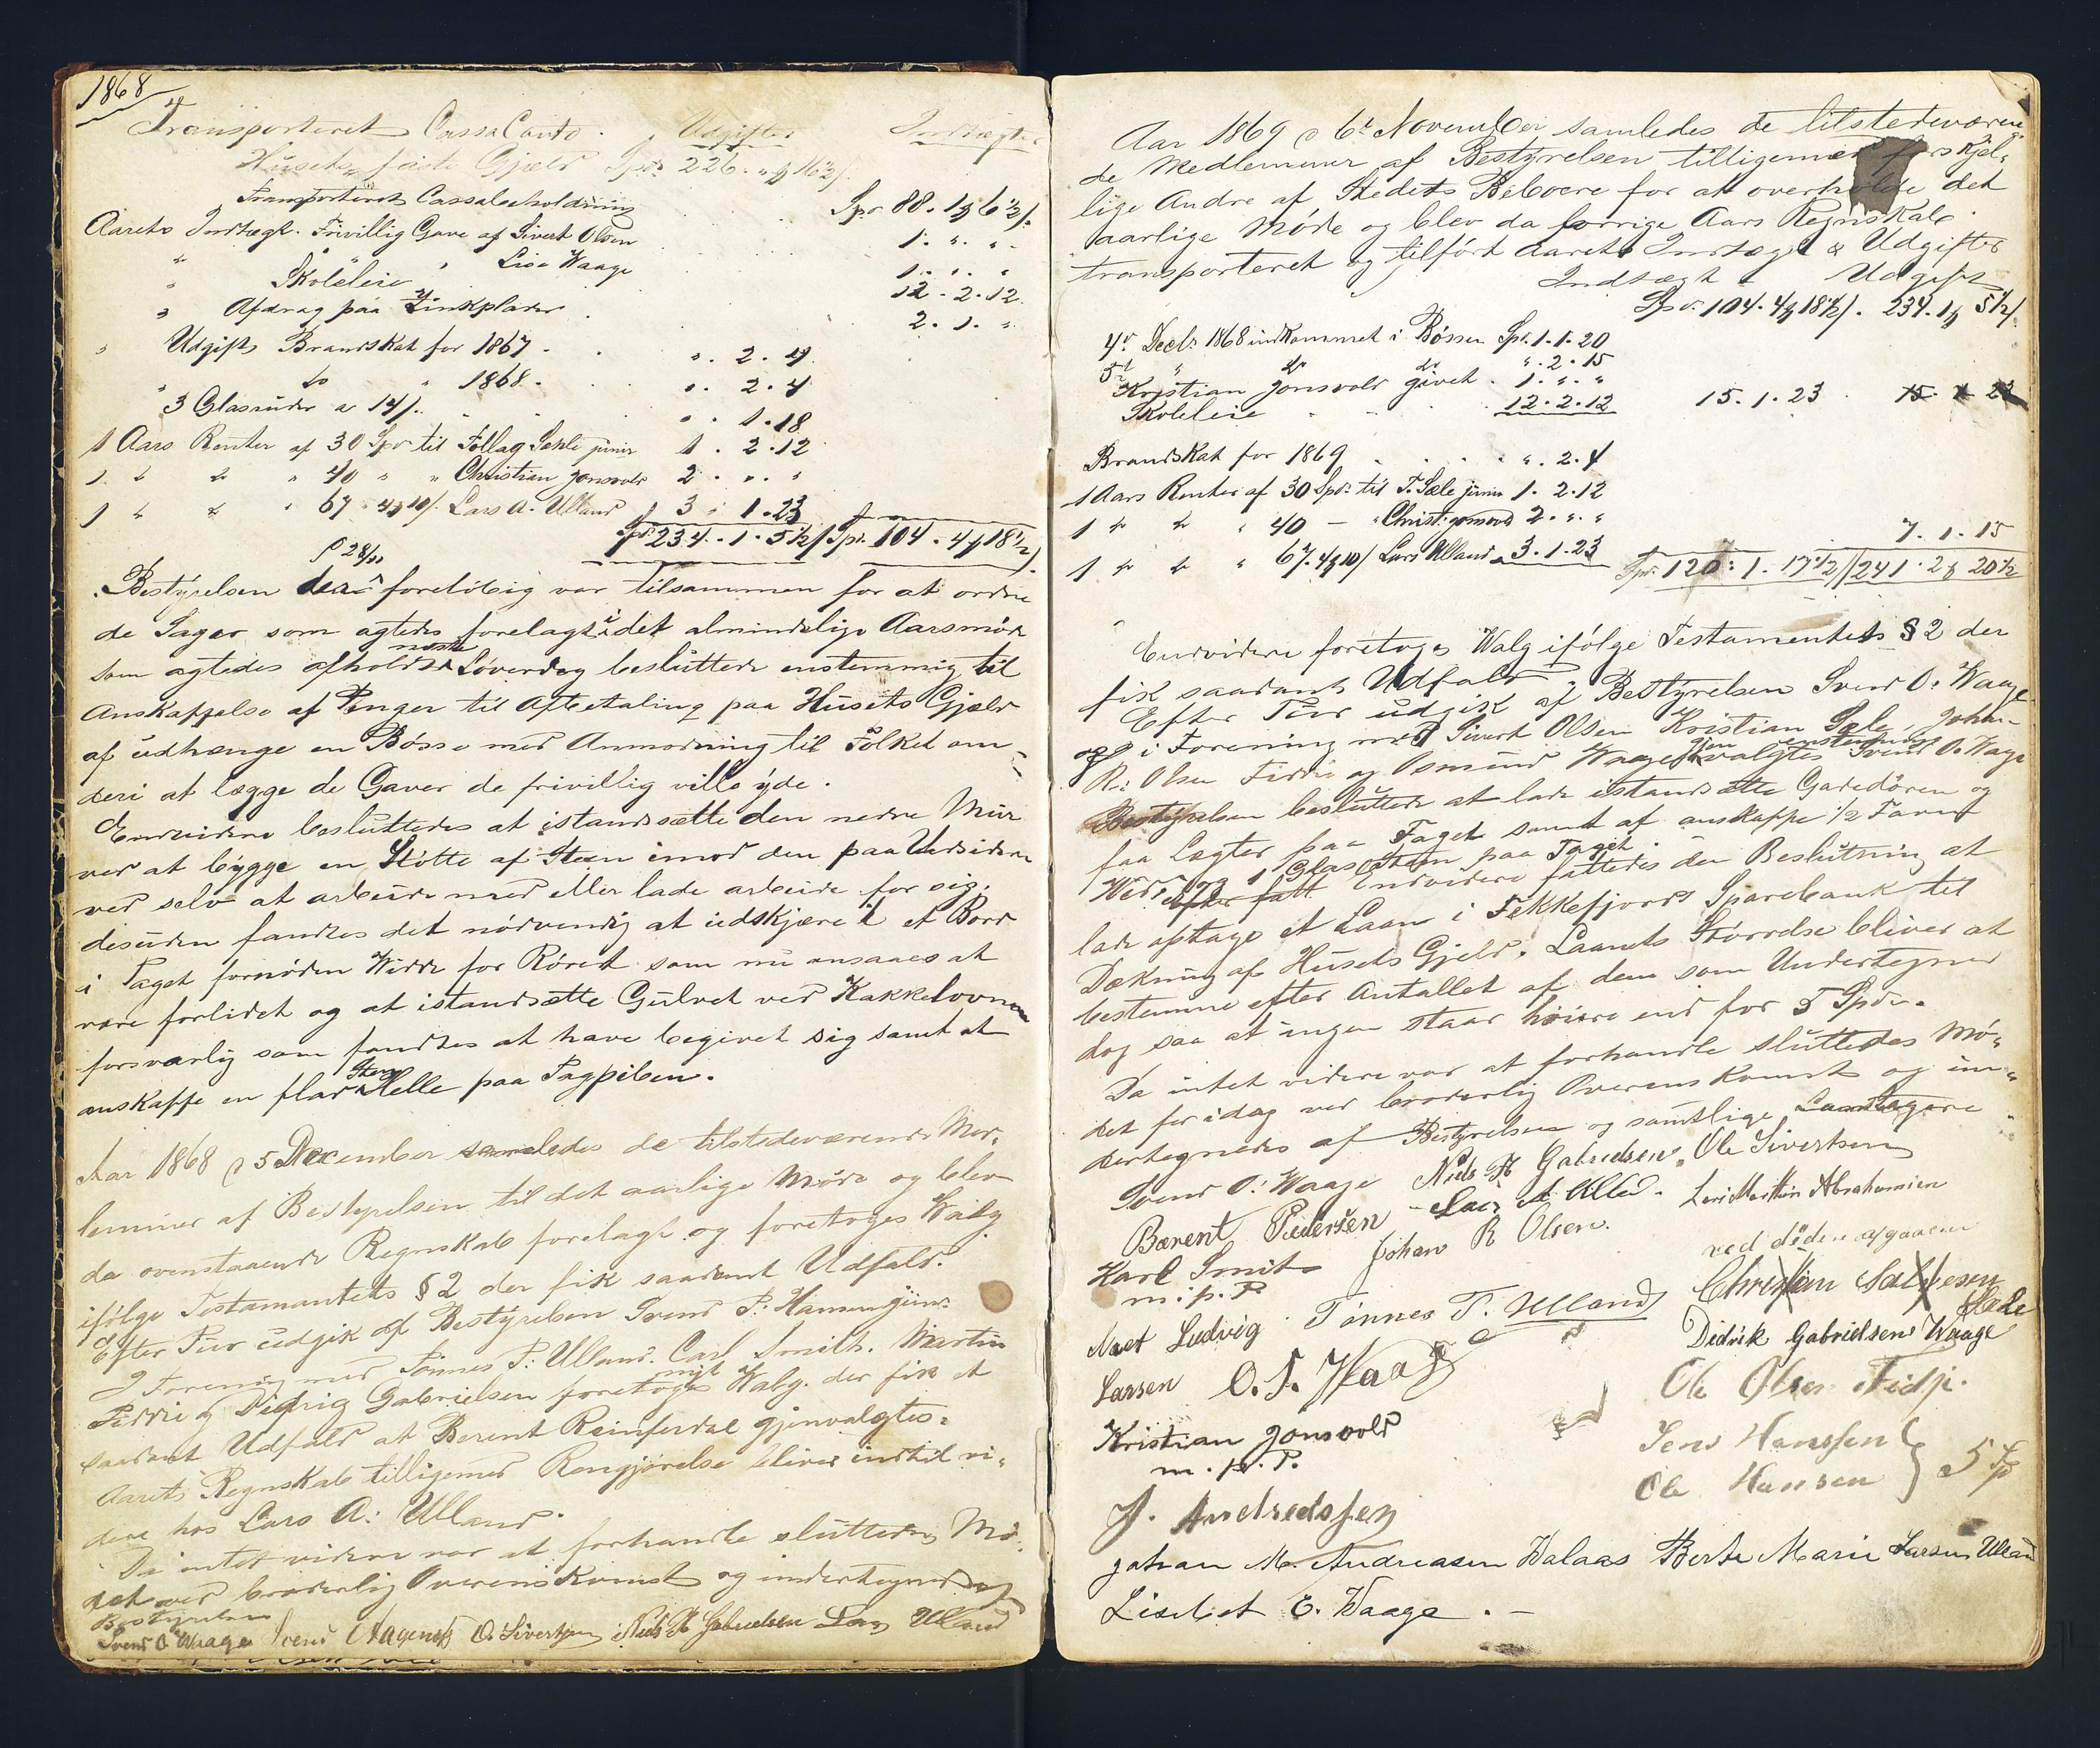 1868
Transporteret CassaConto. Udgifter Indtægter
Husets faste Gjæld Spdr 226. " ₰ 16½/.
Transporteret Cassabeholdning Spr. 88. 1 ₰ 6½/.
Aarets Indtægt. Frivillig Gave af Sivert Olsen 1. ". "
" " Lisa Waage 1. ". "
" Skoleleie 12. 2. 12
" Afdrag paa Zinkplader 2. 1. "
" Udgift Brandskat for 1867 ". 2. 4
" do " 1868. ". 2. 4
3 Glasruder a 14/. ". 1. 18
1 Aars Renter af 30 Spdr til Tollag Sehle junir 1. 2. 12
1. " " " 40 " " Christian Jonsvold 2. ". "
1 " " " 67. 4 ₰ 10/. Lars A. Ulland 3. 1. 23
Spr 234. 1. 5½/. Spr. 104. 4 ₰ 18½/.
P 28/11
Bestyrelsen der foreløbig var tilsammen for at ordne
de Sager som agtedes forelagt i det almindelige Aarsmøde
som agtedes afholdt næste Løverdag besluttede enstemmig til
Anskaffelse af Penger til Afbetaling paa Husets Gjæld
af udhænge en Bøsse med Anmodning til Folket om
deri at lægge de Gaver de frivillig ville yde.
Endvidere besluttedes at istandsætte den nedre Mur
ved at bygge en Støtte af Steen imod den paa Udsiden
ved selv at arbeide med eller lade arbeide for sig,
desuden fandtes det nødvendig at udskjære i et Bord
i Taget fornøden Vidde for Røret som nu ansaaes at
være forlidet og at istandsætte Gulvet ved Kakkelovnen
forsvarlig som fandtes at have begivet sig samt at
anskaffe en flad Sten Helle paa Tagpiben.
Aar 1868 d 5 December samledes de tilstedeværende Med-
lemmer af Bestyrelsen til det aarlige Møde og blev
da ovenstaaende Regnskab forelagt og foretoges Valg
ifølge Testamentets § 2 der fik saadant Udfald.
Efter Tur udgik af Bestyrelsen Svend P. Hamung
I Forening med Tønnes T. Ulland. Carl Smith. Martin
Fidde og Didrig Gabrielsen foretoges nyt Valg. der fik et
saadant Udfald at Berent Reinferdal gjenvalgtes.
Aarets Regnskab tilligemed Rengjørelse bliver indtil vi-
dere hos Lars A. Ulland.
Da intet videre var at forhandle sluttedes Mø-
det ved broderlig Overenskomst og undertegnedes af
Bestyrelsen
Svend O Waage Svend O. Sivertsen Niels K Gabrielsen Lars Ulland
Aar 1869 d 6t November samledes de tilstedeværen-
de Medlemmer af Bestyrelsen tilligemed forskjel-
lige Andre af Stedets Beboere for at overholde det
aarlige Møde og blev da forrige Aars Regnskab
transporteret og tilført Aarets Indtægt & Udgifter
Indtægt Udgift
Spdr. 104. 4 ₰ 18½/. 234. 1 ₰ 5½/.
4d Decbr 1868 indkommet i Bøssen Spd. 1. 1. 20
5t " do do ". 2. 15
Kristian Jonsvold givet 1. ". "
Skoleleie 12. 2. 12 15. 1. 23
Brandskat for 1869 ". 2. 4
1 Aars Renter af 30 Spdr til T. Sæle junir 1. 2. 12
1 " " " 40 — " Christ. Jonsvold 2. ". "
1 " " " 67. 4 ₰ 10/ Lars Ulland 3. 1. 23 7. 1. 15
Spr. 120. 1. 17½/ 241. 2 ₰ 20½
Endvidere foretoges Walg ifølge Testamentets § 2 der
fik saadant Udfald
Efter Tur udgik af Bestyrelsen Svend O. Waage
og i Forening med Sivert Olsen Kristian Sæle Johan
R. Olsen Fidde og Osmund Waage gjenvalgtes enstemmig Svend O. Waage
Bestyrelsen besluttede at lade istandsætte Gavedøren og
faa Lægter paa Taget samt af anskaffe ½ Favn
Wed og 1 Glassteen paa Taget.
Endvidere fattedes den Beslutning at
lade optage et Laan i Fekkefjords Sparebank til
Dækning af Husets Gjeld. Laanets Størrelse bliver at
bestemme efter Antallet af dem som Undertegner
dog saa at ingen staar høiere end for 5 Spdr.
Da intet videre var at forhandle sluttedes Mø-
det for idag ved broderlig Overenskomst og un-
dertegnedes af Bestyrelsen og samtlige Laantagere
Svend O. Waage Niels K Gabrielsen. Ole Sivertsen
Bærent Pedersen Lars A Ulland. Martin Abrahamsen
Karl Smit Johan R Olsen. ved døden afgaaen
m. p. P Christian Salvesen
Sæle
Ludvig Tønnes T. Ulland Didrik Gabrielsen Waage
Larsen O. T. Waage Ole Olsen Fidje.
Kristian Jonsvold Jens Hanssen
m. p. P. Ole Hansen } 5 Sp
J. Andreassen
Johan M. Andreasen Walaas Berte Marie Larsen Ulland
Lisebet E. Waage. —